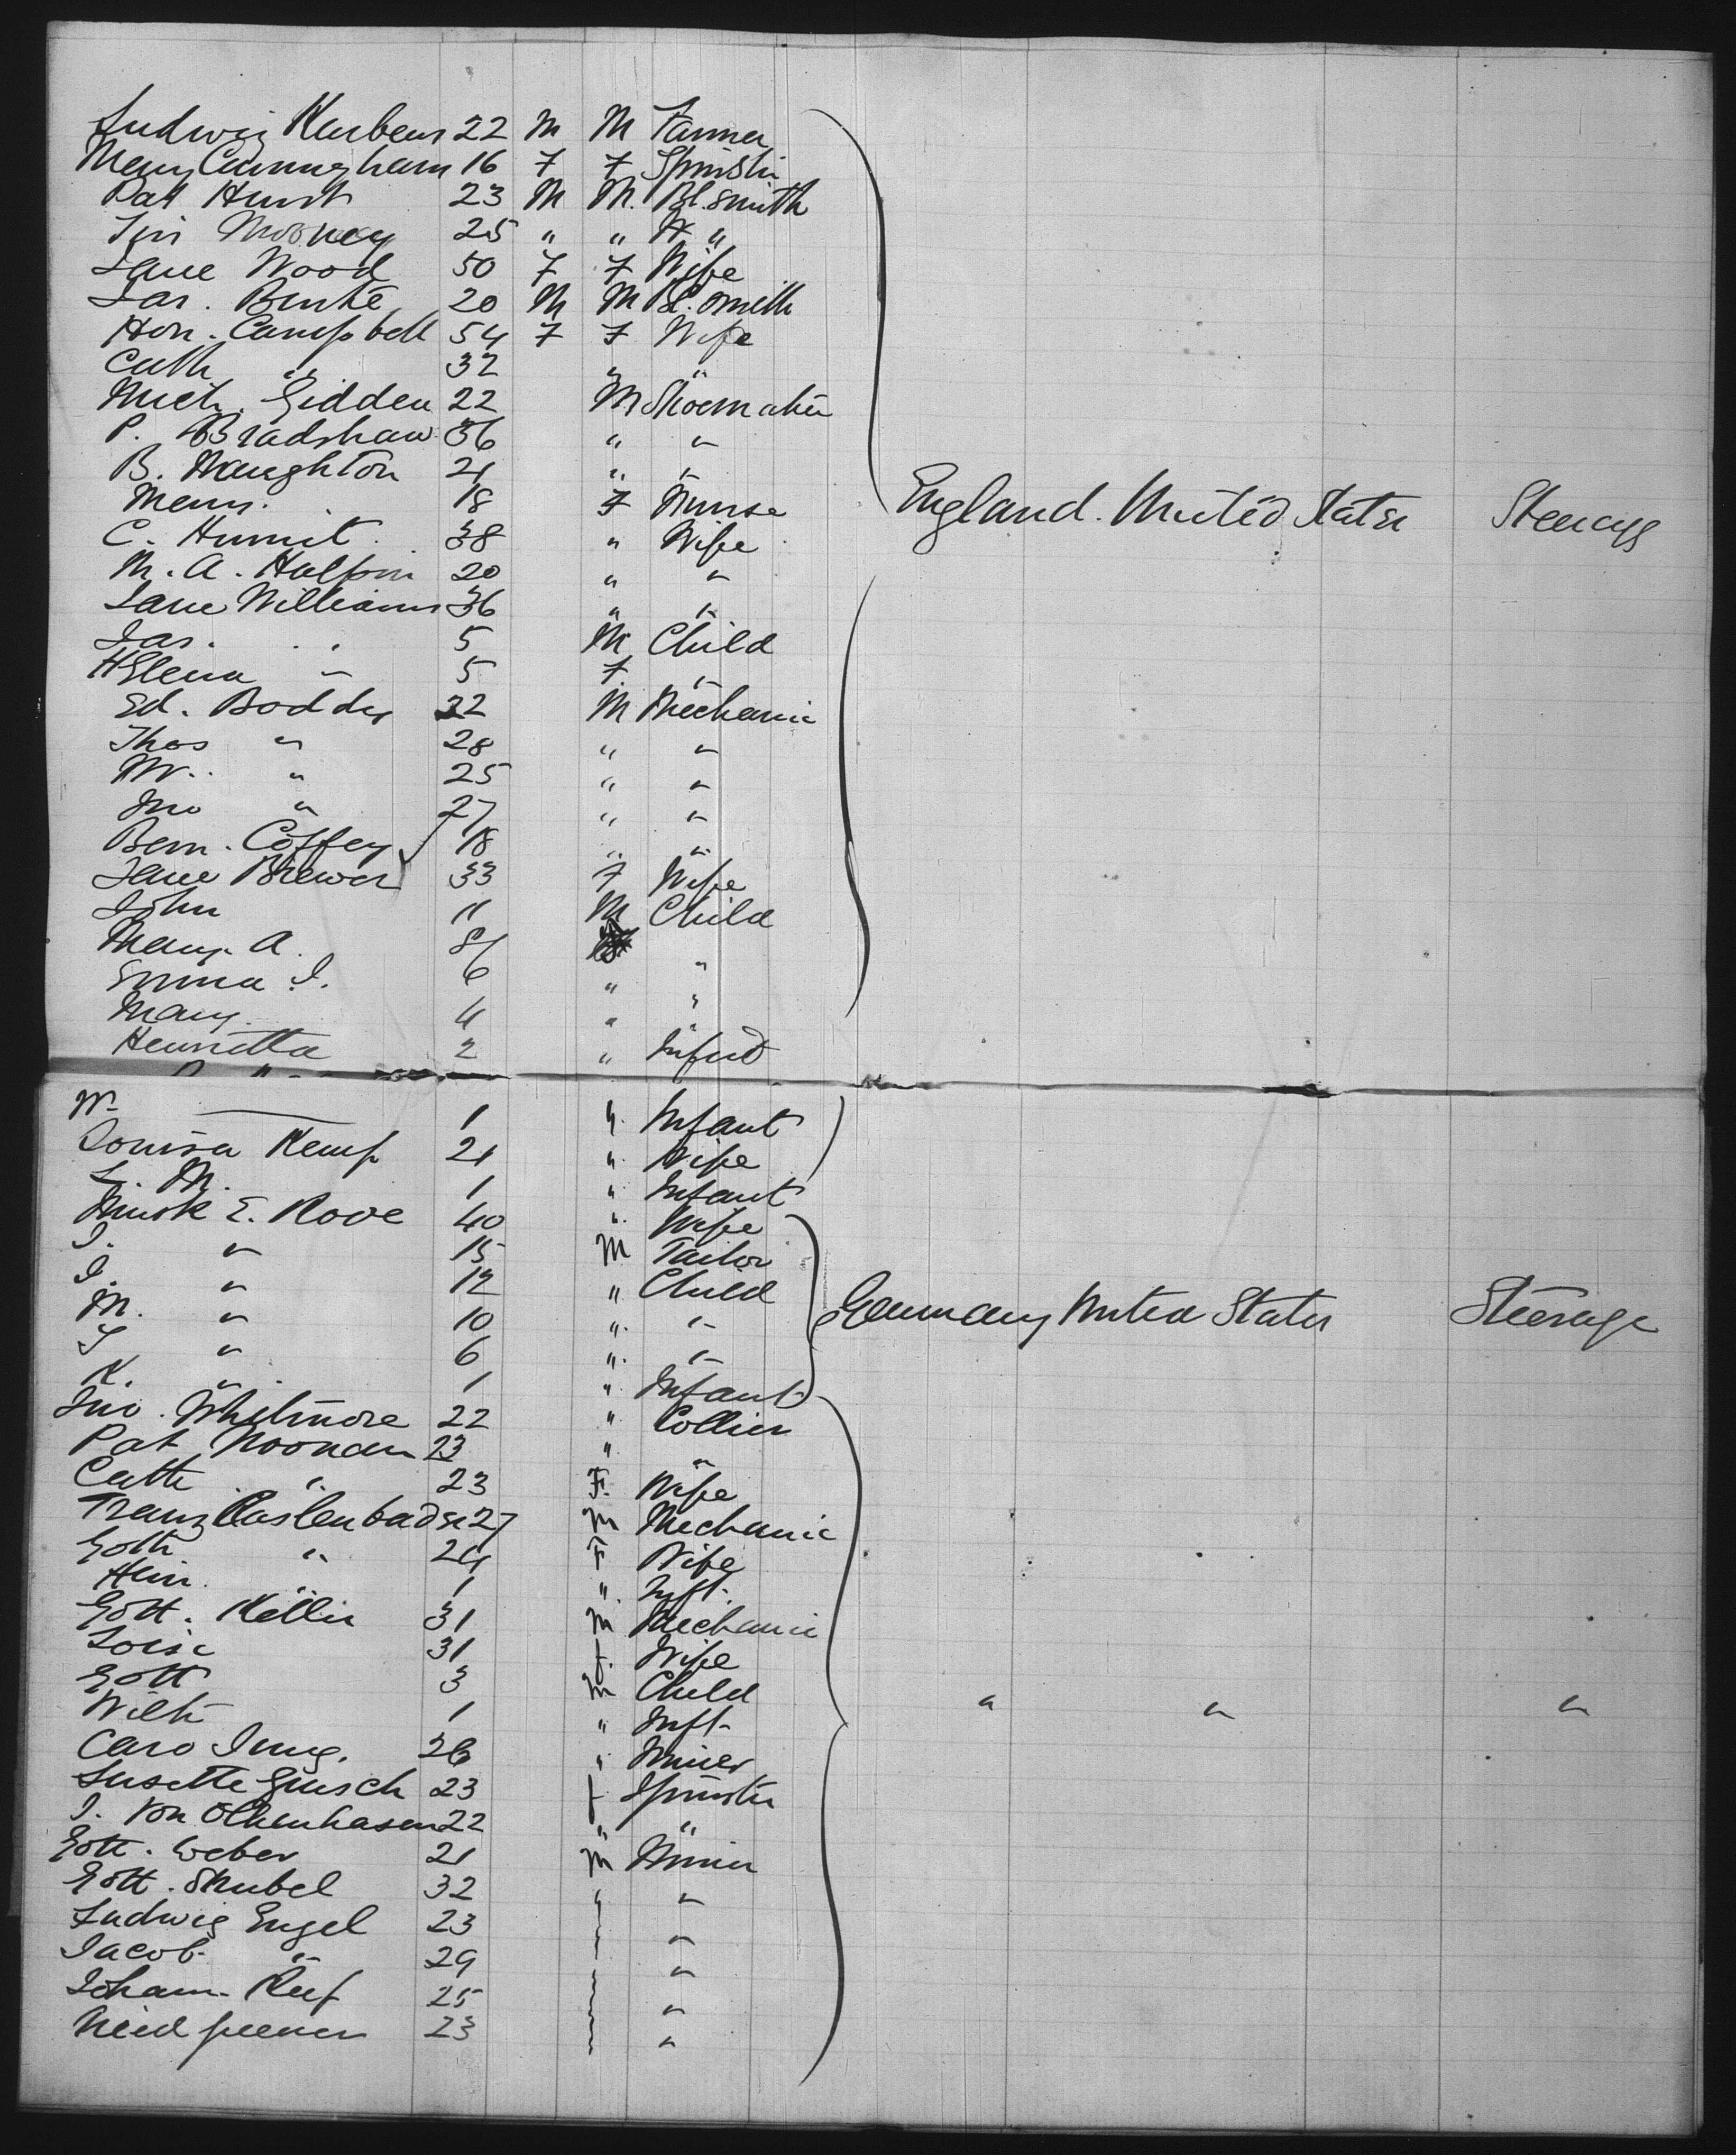 Ludwig Kurbeur 22 M M Farmer
Mary Cunningham 16 F F Spinstr
Pat Hurst 23 M M. Bl. smith
Jim Mooney 25 " " "
Jane Wood 50 F F Wife
Jas. Burke 20 M M Bl. smith
Hon. Campbell 54 F F Wife
Cath " 32 " "
Mich. Gidden 22 M Shoemaker
P. Bradshaw 36 " "
B. Naughton 21 " "
Mary. 18 F Nurse
England. United States Steerage
C. Hunnit. 38 " Wife
M. A. Halpin 20 " "
Jane Williams 36 " "
Jas. " 5 M Child
Helena " 5 F "
Ed. Boddy 22 M Mechanic
Thos " 28 " "
W. " 25 " "
Jno " 27 " "
Bern. Coffey 18 " "
Jane Brewer 33 F Wife
John 11 M Child
Mary A. 8 "
Emma J. 6 " "
Mary 4 " "
Henrietta 2 " Infant
W. 1 " Infant
Louisa Kemp 21 " Wife
L. M. 1 " Infant
E. Rove 40 " Wife
J. " 15 M Tailor
J. " 12 " Child
M. " 10 " "
Germany United States Steerage
J " 6 " "
K. " 1 " Infant
Jno. Whitmore 22 " Collier
Pat Noonan 23 " "
Cath " 23 F. Wife
Franz 27 M Mechanic
Goth " 24 F Wife
Hein. 1 " Inft.
Gott. Kellir 31 M Mechanic
Loise 31 f. Wife
Gott 3 M Child
" " "
Wilh 1 " Inft.
Caro Jung. 26 " Miner
Susette Gusch 23 f Spinster
J. von Olkenhasen 22 " "
Gott. Weber 21 M Miner
Gott. Strubel 32 " "
Ludwig Engel 23 "
Jacob " 29 "
Johann Ruf 25 "
23 "